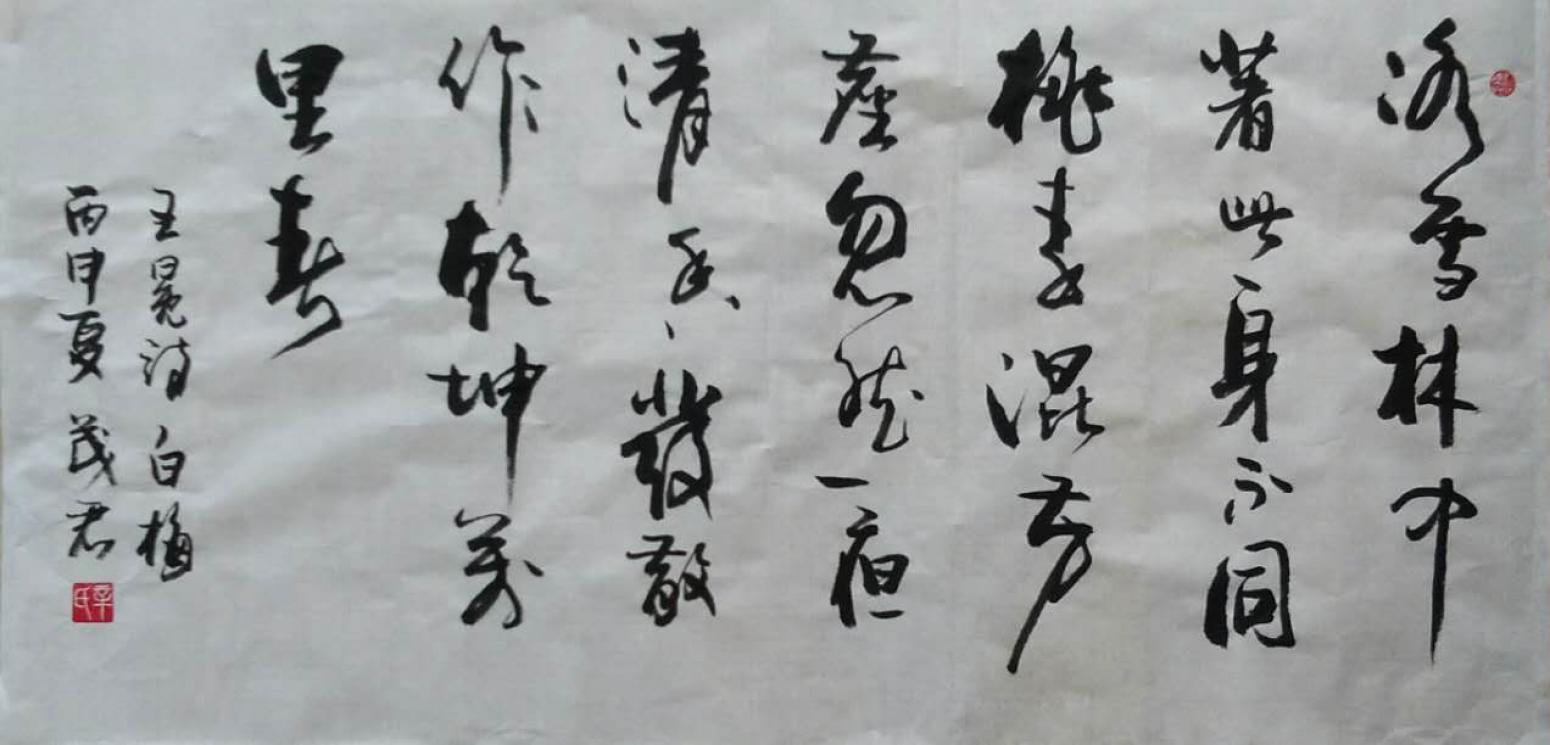 冰雪林中
著此身不同
桃李混芳
塵忽然一夜
清香發散
作乾坤萬
里春
王冕詩白梅
丙申夏茂君
辛氏